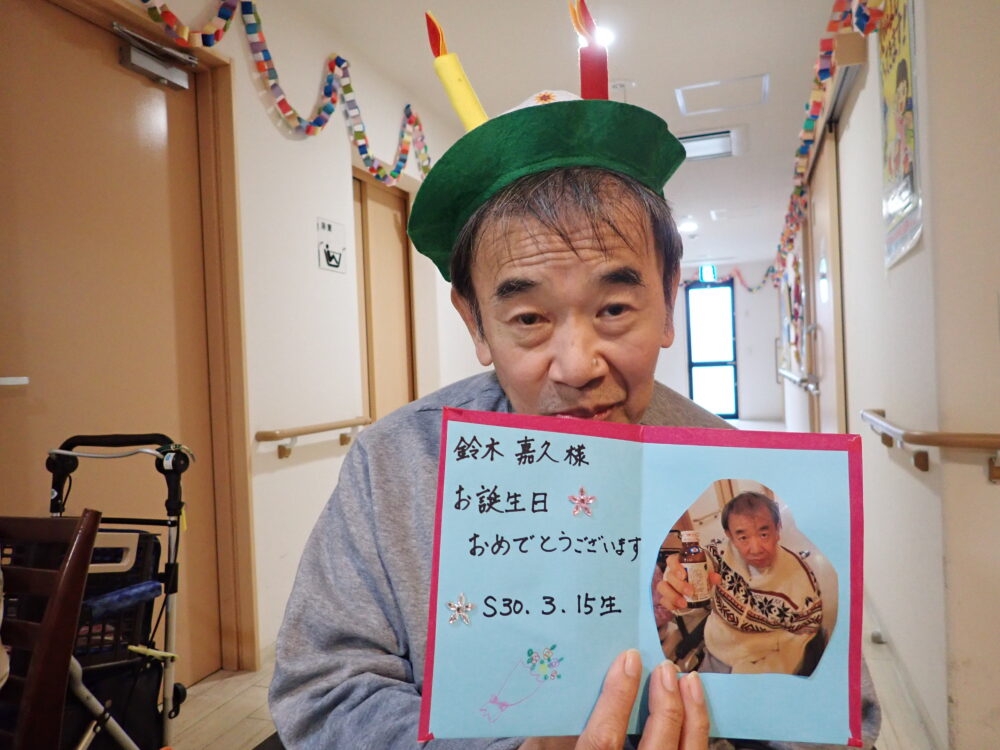 鈴木 嘉久 様
お誕生日
おめでとうございます
S30.3.15生